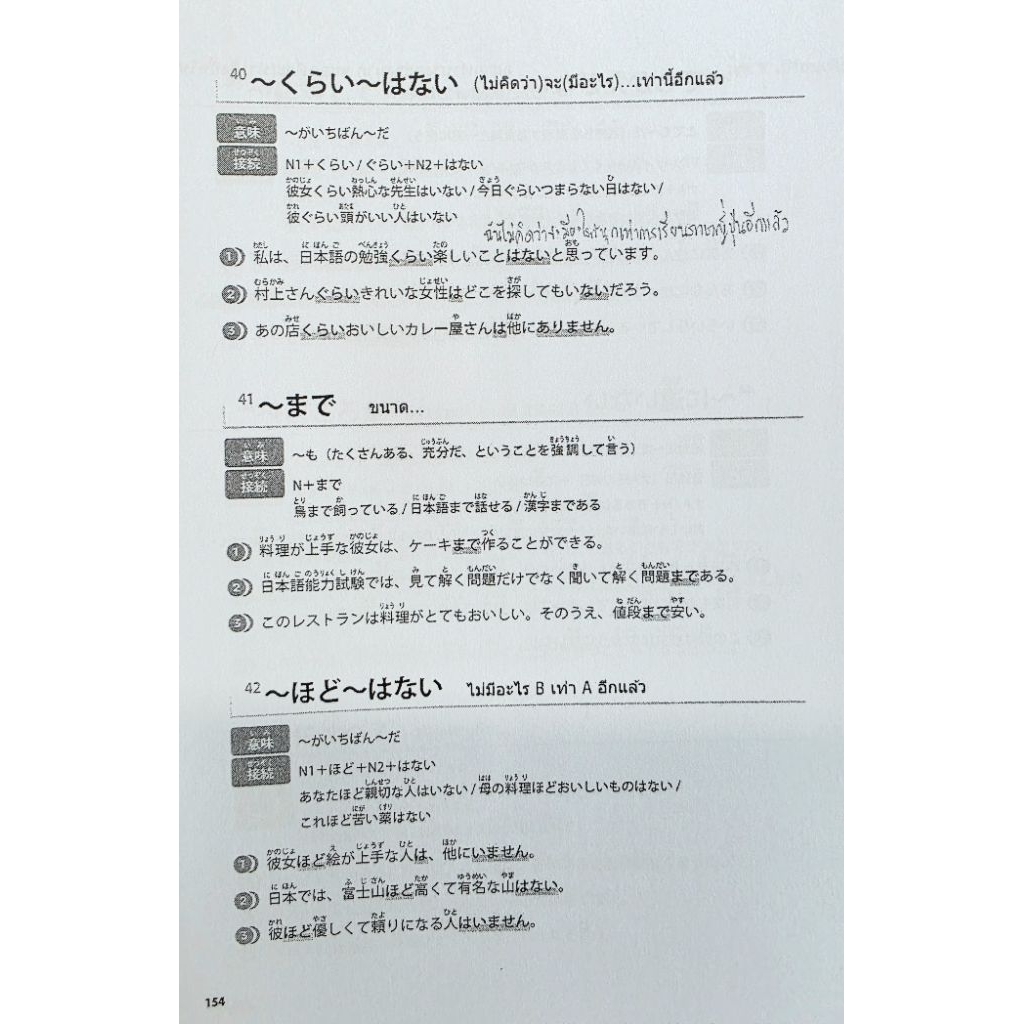 40 ～くらい～はない (ไม่คิดว่า)จะ(มีอะไร)...เท่านี้อีกแล้ว
意味 ～がいちばん～だ
接続 N1＋くらい / ぐらい＋N2＋はない
彼女くらい熱心な先生はいない / 今日ぐらいつまらない日はない /
彼ぐらい頭がいい人はいない
ฉันไม่คิดว่าจะมีอะไรสนุกเท่าการเรียนภาษาญี่ปุ่นอีกแล้ว
① 私は、日本語の勉強くらい楽しいことはないと思っています。
② 村上さんぐらいきれいな女性はどこを探してもいないだろう。
③ あの店くらいおいしいカレー屋さんは他にありません。
41 ～まで ขนาด...
意味 ～も（たくさんある、充分だ、ということを強調して言う）
接続 N＋まで
鳥まで飼っている / 日本語まで話せる / 漢字まである
① 料理が上手な彼女は、ケーキまで作ることができる。
② 日本語能力試験では、見て解く問題だけでなく聞いて解く問題まである。
③ このレストランは料理がとてもおいしい。そのうえ、値段まで安い。
42 ～ほど～はない ไม่มีอะไร B เท่า A อีกแล้ว
意味 ～がいちばん～だ
接続 N1＋ほど＋N2＋はない
あなたほど親切な人はいない / 母の料理ほどおいしいものはない /
これほど苦い薬はない
① 彼女ほど絵が上手な人は、他にいません。
② 日本では、富士山ほど高くて有名な山はない。
③ 彼ほど優しくて頼りになる人はいません。
154